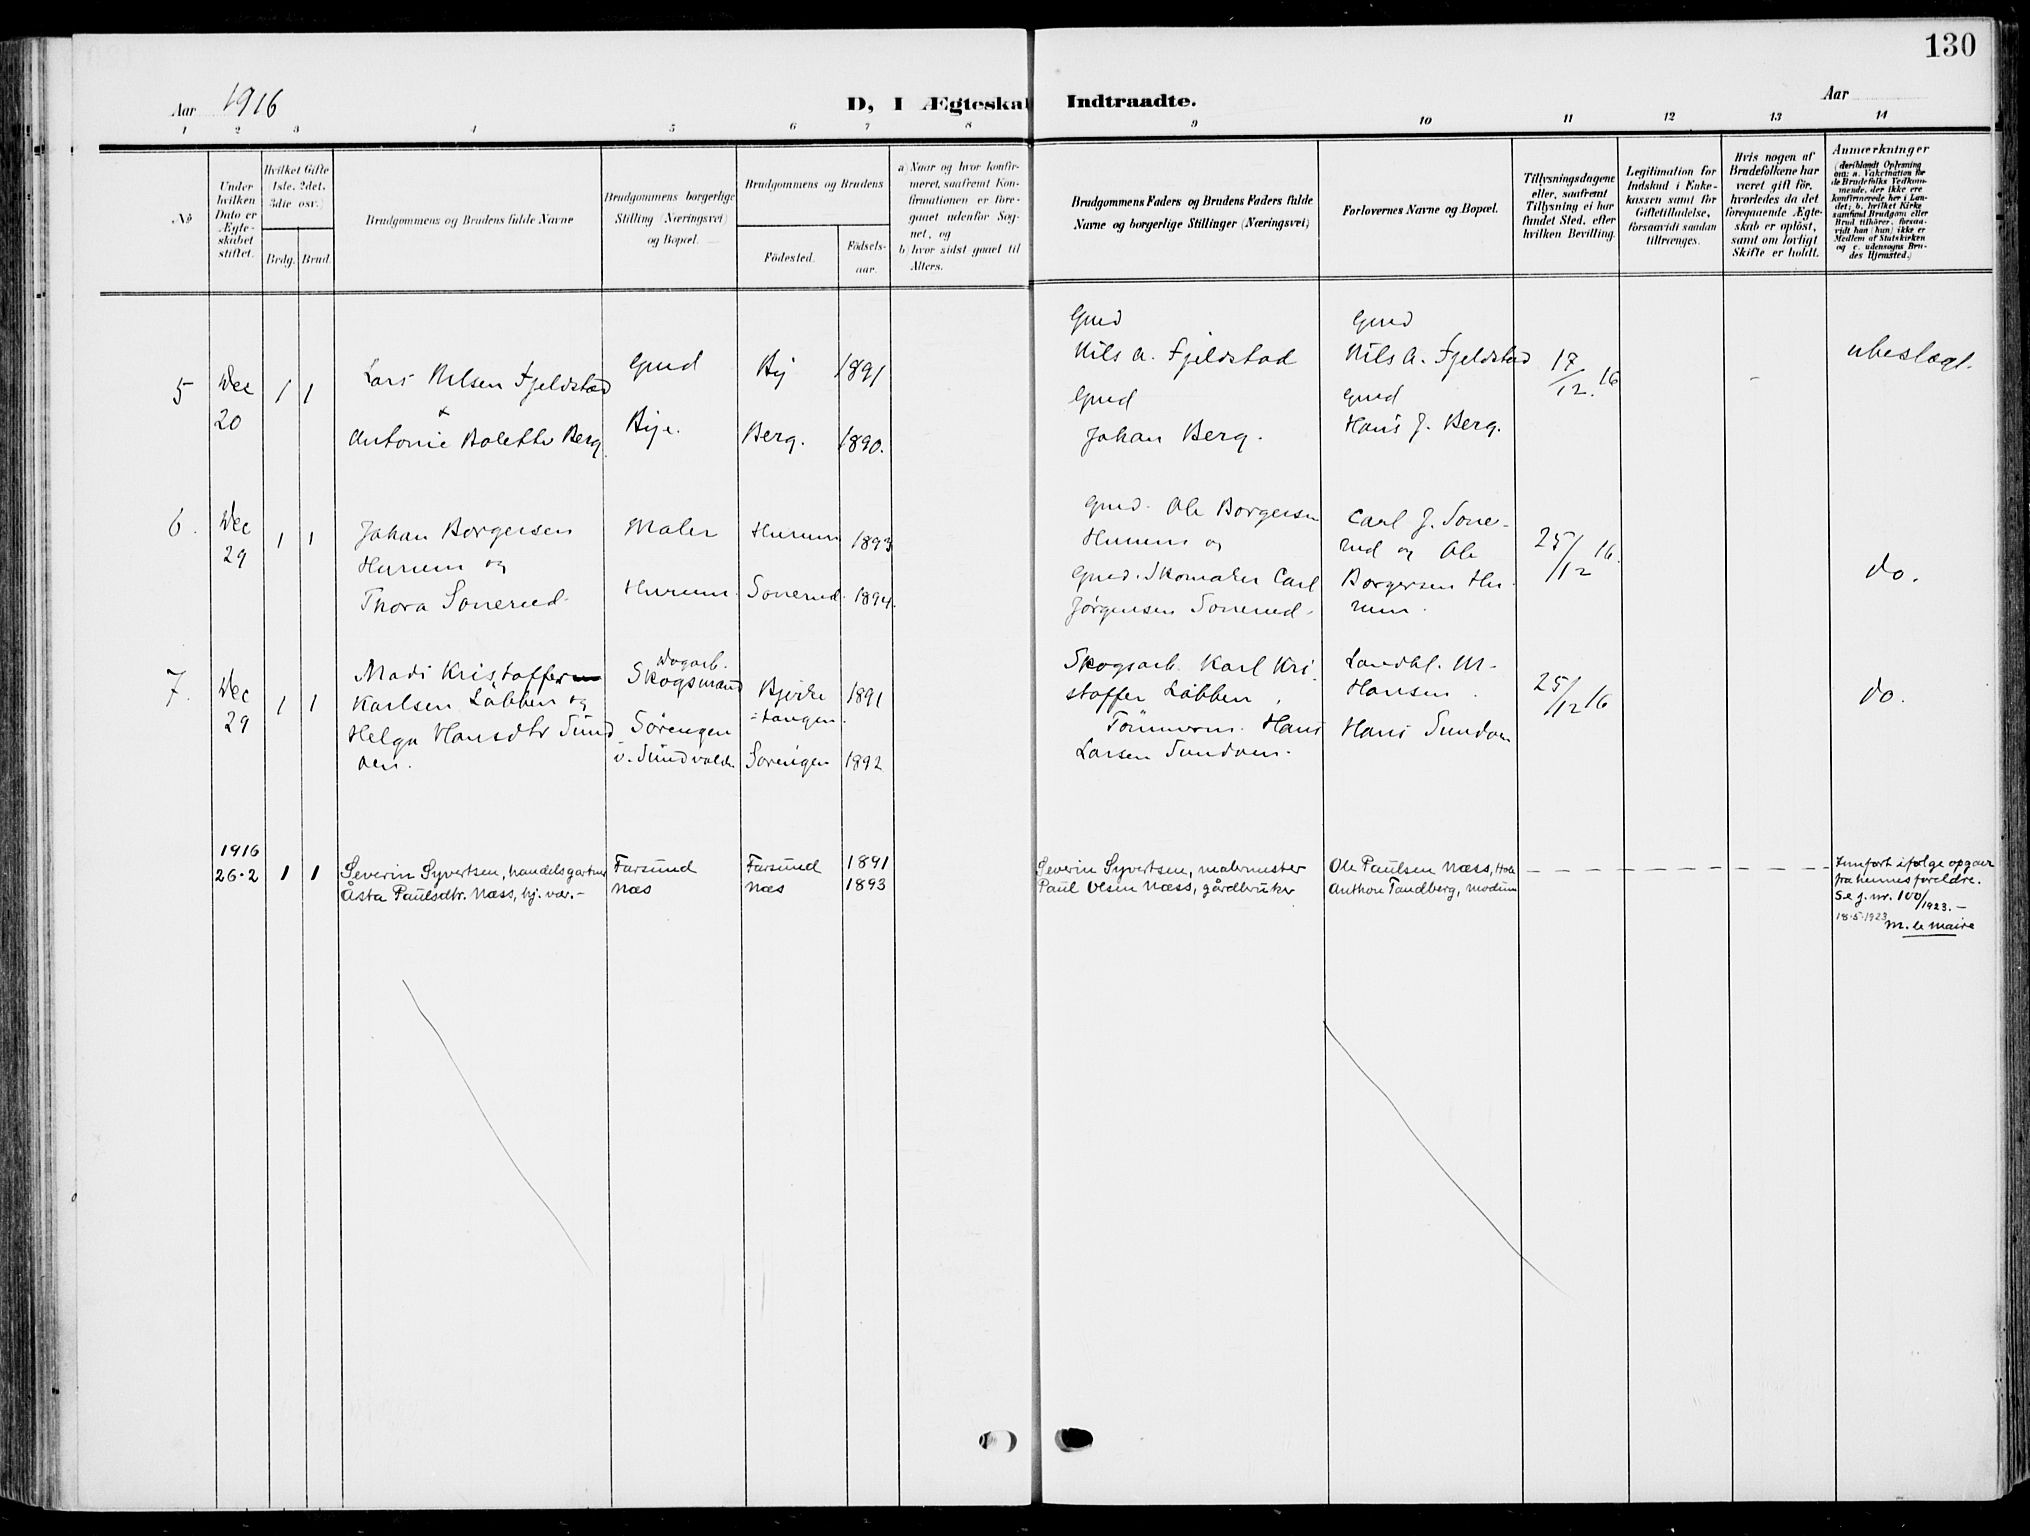 130
Aar 1916
D, I Ægteskab Indtraadte.
Aar
1 2 3 4 5 6 7 8 9 10 11 12 13 14
No
Under
hvilken
Dato er
Ægte-
skabet
stiftet.
Hvilket Gifte
(1ste, 2det,
3die osv.)
Brdg. Brud.
Brudgommens og Brudens fulde Navne
Brudgommens borgerlige
Stilling (Næringsvei)
og Bopæl.
Brudgommens og Brudens
Födested.
Födsels-
aar.
a) Naar og hvor konfir-
meret, saafremt Kon-
firmationen er fore-
gaaet udenfor Sog-
net, og
b) hvor sidst gaaet til
Alters.
Brudgommens Faders og Brudens Faders fulde
Navne og borgerlige Stillinger (Næringsvei)
Forlovernes Navne og Bopæl.
Tillysningsdagene
eller, saafremt
Tillysning ei har
fundet Sted, efter
hvilken Bevilling.
Legitimation for
Indskud i Enke-
kassen samt for
Giftetilladelse,
forsaavidt saadan
tiltrænges.
Hvis nogen af
Brudefolkene har
været gift för,
hvorledes da det
foregaaende Ægte-
skab er oplöst,
samt om lovligt
Skifte er holdt.
Anmærkninger
(deriblandt Oplysning
om: a. Vakcination for
de Brudefolks Vedkom-
mende, der ikke ere
konfirmerede her i Lan-
det; b. hvilket Kirke-
samfund Brudgom eller
Brud tilhörer, forsaa-
vidt han (hun) ikke er
Medlem af Statskirken
og c. udensogns Bru-
des Hjemsted.)
5 Dec
20
1 1
Lars Nilsen Fjeldstad
Antonie Bolette Berg
Gmd
Bye.
By 1891
Berg. 1890.
Gmd
Nils A. Fjeldstad
Gmd
Johan Berg.
Gmd
Nils A. Fjeldstad
Gmd
Hans J. Berg.
17/12. 16
ubeslægt.
6. Dec
29
1 1
Johan Borgersen
Hurum og
Thora Sonerud
Maler
Hurum.
Hurum 1893
Sonerud. 1894.
Gmd. Ole Borgersen
Hurum og
Gmd. Skomaker Carl
Jørgensen Sonerud.
Carl J. Sone-
rud og Ole
Borgersen Hu
rum.
25/12 16.
do.
7. Dec
29
1 1
Mads Kristoffer
Karlsen Løbben og
Helga Hansdtr Sund
øen.
Dagarb.
Skogsmand
Sørengen
v. Sundvolden
Bjerke
=tangen. 1891
Sørengen 1892
Skogsarb. Karl Kri
stoffer Løbben,
Tömmerm. Hans
Larsen Sundøen.
Landhl. M.
Hansen.
Hans Sundøen
25/12 16
do.
1916
26.2 1 1
Severin Syvertsen, handelsgartner
Åsta Paulsdtr. Næss, hj. vær.-
Farsund
Næs
Farsund 1891
Næs 1893
Severin Syvertsen, malermester
Paul Olsen Næss, gårdbruker
Ole Paulsen Næss, Hole
Anthon Tandberg, Modum
Innført ifølge opgave
fra hennes foreldre.
Se j. nr. 100/1923.-
18.5.1923
M. le Maire